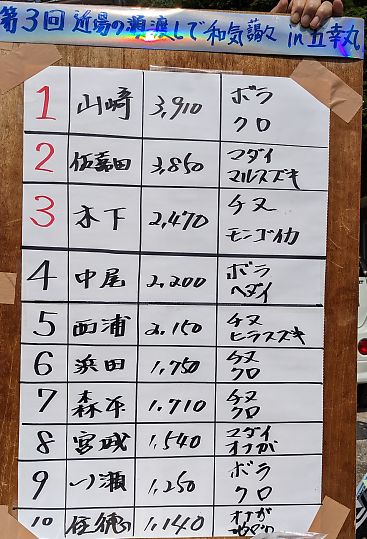 第3回 近場の瀬渡しで和気藹々 in 五幸丸
1 山崎 3,910 ボラ
クロ
2 伍嘉田 3,850 マダイ
マルスズキ
3 木下 2,470 チヌ
モンゴイカ
4 中尾 2,200 ボラ
ヘダイ
5 西浦 2,150 チヌ
ヒラスズキ
6 浜田 1,750 チヌ
クロ
7 森平 1,710 チヌ
クロ
8 宮城 1,540 マダイ
オナガ
9 川瀬 1,250 ボラ
クロ
10 1,140 オナガ